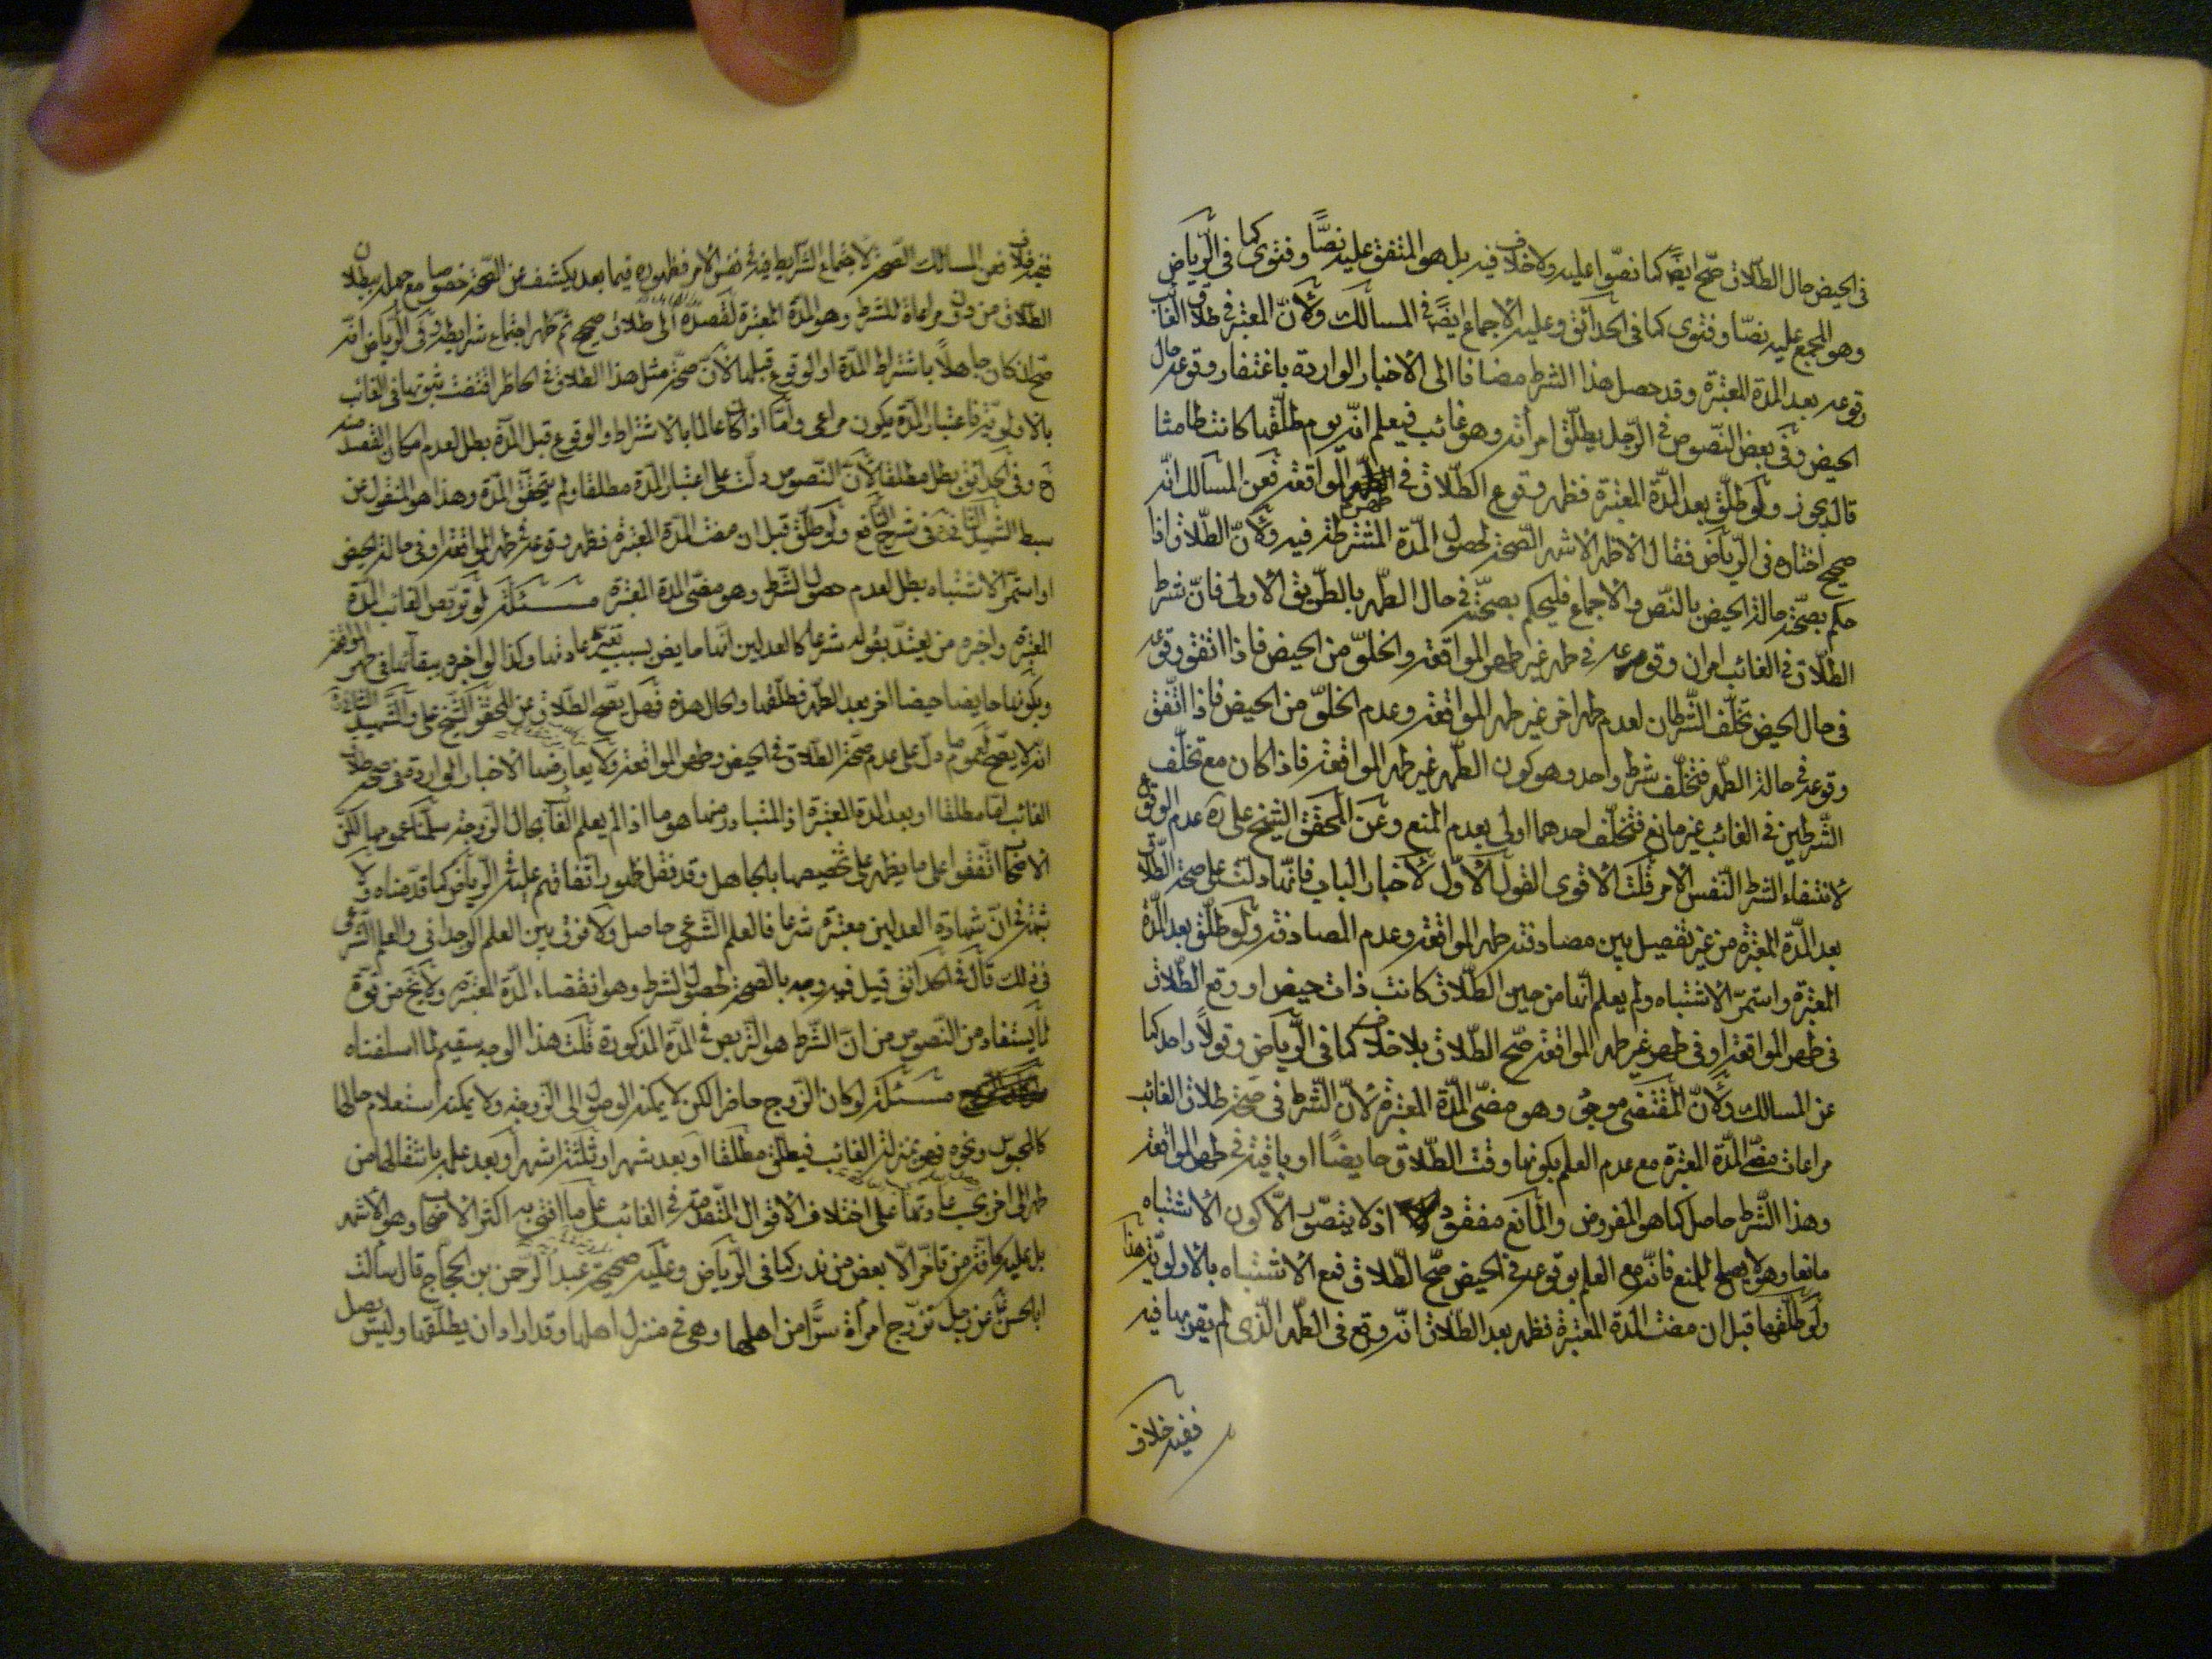 في الحيض حال الطلاق صح ايضا كما نصّوا عليه ولا خلاف فيه بل هو المتفق عليه نصّاً وفتوى كما في الرياض
وهو المجمع عليه نصّا وفتوى كما في الحدائق وعليه الاجماع ايضا في المسالك ولأنّ المعتبر في طلاق الغائب
وقوعه بعد المدة المعتبرة وقد حصل هذا الشرط مضافا الى الاخبار الواردة باغتفار وقوعه حال
الحيض وفي بعض النصوص في الرّجل يطلّق امرأته وهو غائب فيعلم انّه يوم طلّقها كانت طامثا
قال يجوز ولو طلّق بعد المدّة المعتبرة فظهر وقوع الطلاق في طهر المواقعة فعن المسالك انّه
صحيح اختاره في الرياض فقال الاظهر الاشهر الصّحة لحصول المدّة المشترطة فيه ولأنّ الطلاق اذا
حكم بصحّته حالة الحيض بالنّص والاجماع فليحكم بصحّته في حال الطّهر بالطّريق الاولى فانّ شرط
الطلاق في الغائب امران وقوعه في طهر غير طهر المواقعة والخلوّ من الحيض فاذا اتفق وقوعه
في حال الحيض تخلّف الشّرطان لعدم طهر اخر غير طهر المواقعة وعدم الخلوّ من الحيض فاذا اتّفق
وقوعه في حالة الطّهر فتخلّف شرط واحد وهو كون الطّهر غير طهر المواقعة فاذا كان مع تخلّف
الشّرطين في الغائب غير مانع فتخلّف احدهما اولى بعدم المنع وعن المحقق الشيخ على ره عدم الوقوع
لانتفاء الشرط النّفس الامر قلت الاقوى القول الاوّل لاخبار الباب فانّها دلت على صحة الطّلاق
بعد المدّة المعتبرة من غير تفصيل بين مصادفته طهر المواقعة وعدم المصادفة ولو طلّق بعد المدّة
المعتبرة واستمرّ الاشتباه ولم يعلم انّها من حين الطلاق كانت ذات حيض او وقع الطلاق
في طهر المواقعة او في طهر غير طهر المواقعة صحّ الطّلاق بلا خلاف كما في الرّياض وقولاً واحدا كما
عن المسالك ولأنّ المقتضى موجود وهو مضىّ المدّة المعتبرة لانّ الشّرط في صحة طلاق الغائب
مراعات مضىّ المدّة المعتبرة مع عدم العلم بكونها وقت الطّلاق حايضاً او باقية في طهر المواقعة
وهذا الشّرط حاصل كما هو المفروض والمانع مفقود اذ لا يتصّور الّا كون الاشتباه
مانعا وهو لا يصلح للمنع فانّه مع العلم بوقوعه في الحيض صحّ الطّلاق فمع الاشتباه بالاولويّة هذا
ولو طلّقها قبل ان مضت المدة المعتبرة فظهر بعد الطلاق انّه وقع في الطّهر الّذى لم يقربها فيه
ففيه خلاف
فيه خلاف فعن المسالك الصّحة لاجتماع الشرايط فيه في نفس الامر فظهوره فيما بعد يكشف عن الصحّة خصوصا مع جهله ببطلان
الطلاق من دون مراعاة للشرط وهو المدة المعتبرة لقصده الى طلاق صحيح ثم ظهر اجتماع شرايطه وفى الرياض انّه
صح ان كان جاهلاً باشتراط المدّة او الوقوع قبلها لأنّ صحّة مثل هذا الطلاق في الحاظر اقتضت ثبوتها في الغائب
بالاولويّة فاعتبار المدّة يكون مراعى وامّا اذا كان عالما بالاشتراط والوقوع قبل المدّة بطل لعدم امكان القصد منه
ح وفي الحدائق بطل مطلقا لأنّ النّصوص دلّت على اعتبار المدّة مطلقا ولم يتحقّق المدّة وهذا هو المنقول عن
سبط الشهيد الثاني في شرح النافع ولو طلّق قبل ان مضت المدّة المعتبرة فظهر وقوعه في طهر المواقعة او في حالة الحيض
او استمرّ الاشتباه بطل لعدم حصول الشّرط وهو مضىّ المدة المعتبرة مسئلة لو تربّص الغائب المدّة
المعتبرة واخبره من يعتدّ بقوله شرعا كالعدلين انّها حايض بسبب تغيّر عادتها وكذا لو اخبره ببقائها في طهر المواقعة
وبكونها حايضا حيضا اخر بعد الطّهر فطلّقها والحال هذه فهل يصح الطّلاق عن المحقق الشّيخ على والشّهيد الثّاني ره
انّه لا يصحّ لعموم ما دلّ على عدم صحّة الطّلاق في الحيض وطهر المواقعة ولا يعارضها الاخبار الواردة في صحة طلاق
الغائب امّا مطلقا او بعد المدة المعتبرة اذ المتبادر منها هو ما اذا لم يعلم الغائب بحال الزوجة سلّمنا عمومها لكنّ
الاصحاب اتّفقوا على ما يظهر على تخصيصها بالجاهل وقد نقل ظهور اتّفاقهم عليه في الرّياض كما قدّمناه ولا
شبهة في انّ شهادة العدلين معتبرة شرعا فالعلم الشّرعى حاصل ولا فرق بين العلم الوجدانى والعلم الشّرعى
في ذلك قال في الحدائق قيل فيه وجه بالصّحة لحصول الشرط وهو انقضاء المدّة المعتبرة ولا يخ من قوّة
لما يستفاد من النّصوص من انّ الشّرط هو التّربص في المدّة المذكورة قلت هذا الوجه سقيم لما اسلفناه
مسئلة لو كان الزّوج حاضرا لكن لا يمكنه الوصول الى الزّوجة ولا يمكنه استعلام حالها
كالمحبوس ونحوه فهو بمنزلة الغائب فيطلّق مطلقا او بعد شهر او ثلثة اشهر او بعد علمه بانتقالها من
طهر الى اخر بحسب عادتها على اختلاف الاقوال المتقدّمة في الغائب على ما افتى به اكثر الاصحاب وهو الاشهر
بل عليه كافّة من تأخّر الّا بعض من ندر كما في الرّياض وعليه صحيحة عبد الرّحمن بن الحجاج قال سألت
ابا الحسن ع عن رجل تزوّج امرأة سرًّا من اهلها وهى في منزل اهلها وقد اراد ان يطلّقها وليس يصل